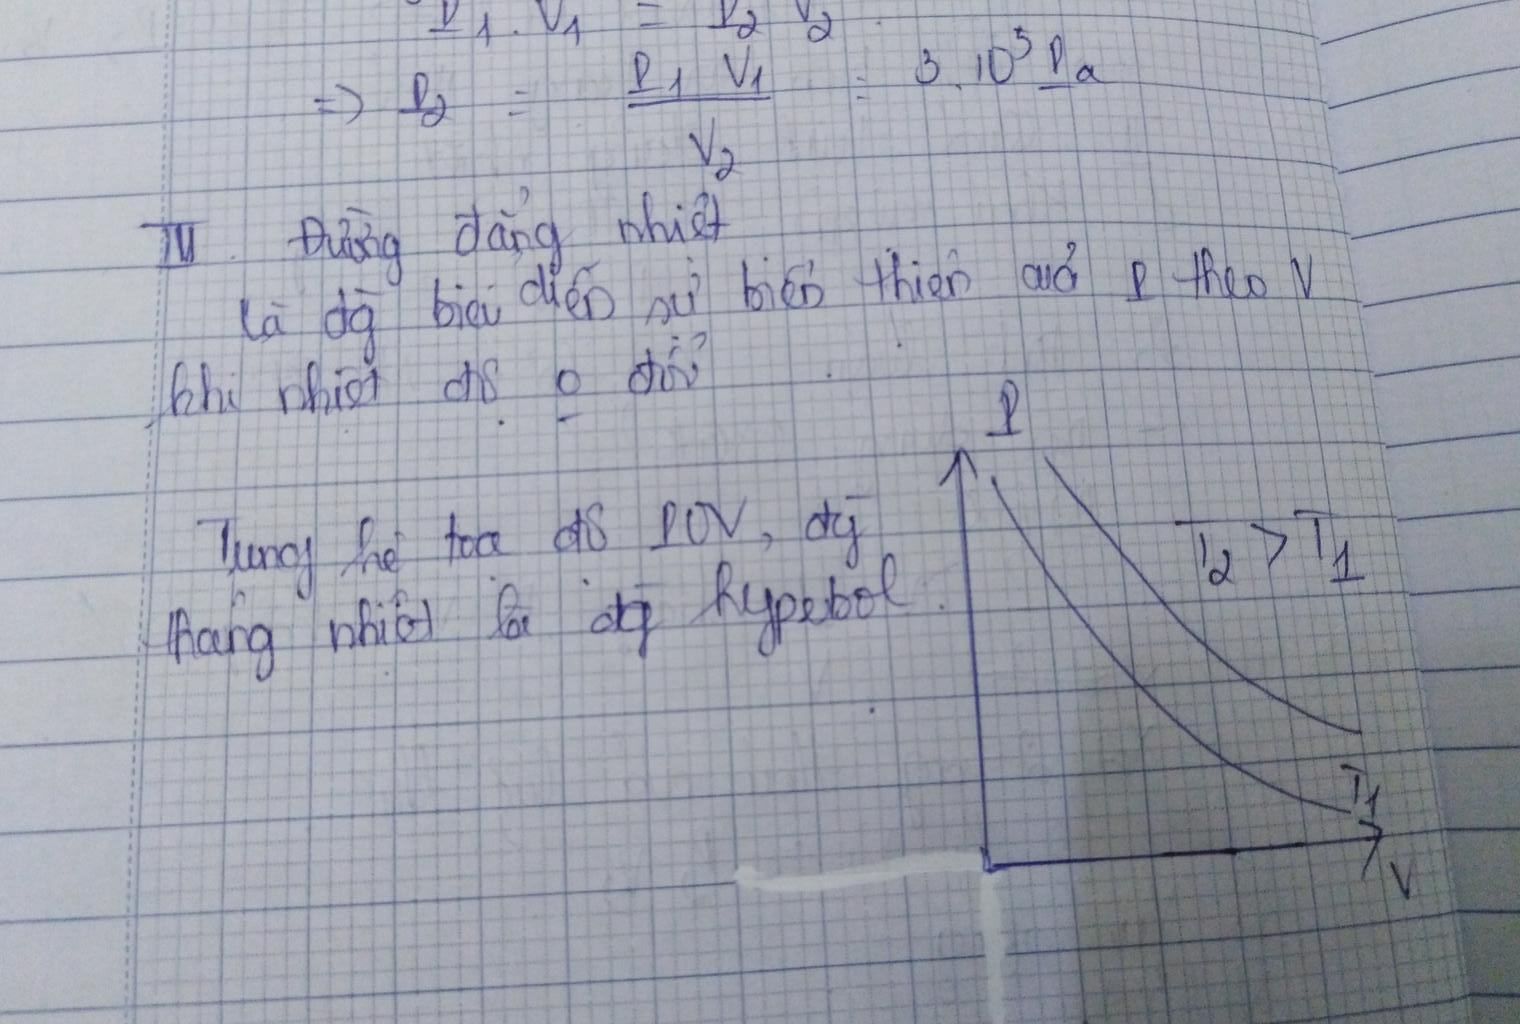 P₁ . V₁ = P₂ V₂
=> P₂ = P₁ V₁ / V₂ = 3.10⁵ Pa
IV. Đường đẳng nhiệt
Là đg biểu diễn sự biến thiên của P theo V
khi nhiệt độ o đổi
P
Trong hệ toạ độ POV, đg
T₂ > T₁
đẳng nhiệt là đg hypebol.
T₁
V